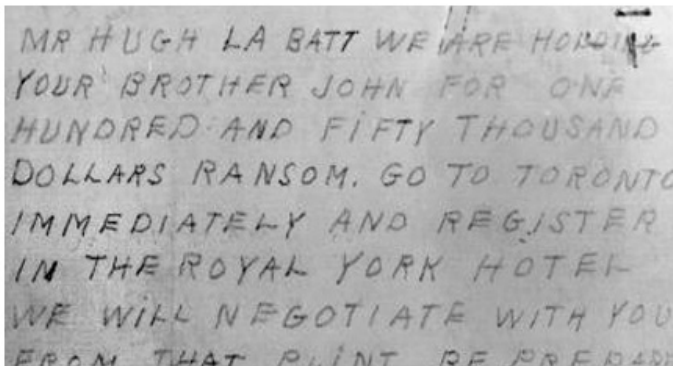 MR HUGH LA BATT WE ARE HOLDING
YOUR BROTHER JOHN FOR ONE
HUNDRED AND FIFTY THOUSAND
DOLLARS RANSOM. GO TO TORONTO
IMMEDIATELY AND REGISTER
IN THE ROYAL YORK HOTEL
WE WILL NEGOTIATE WITH YOU
FROM THAT PLINT. BE PREPARE